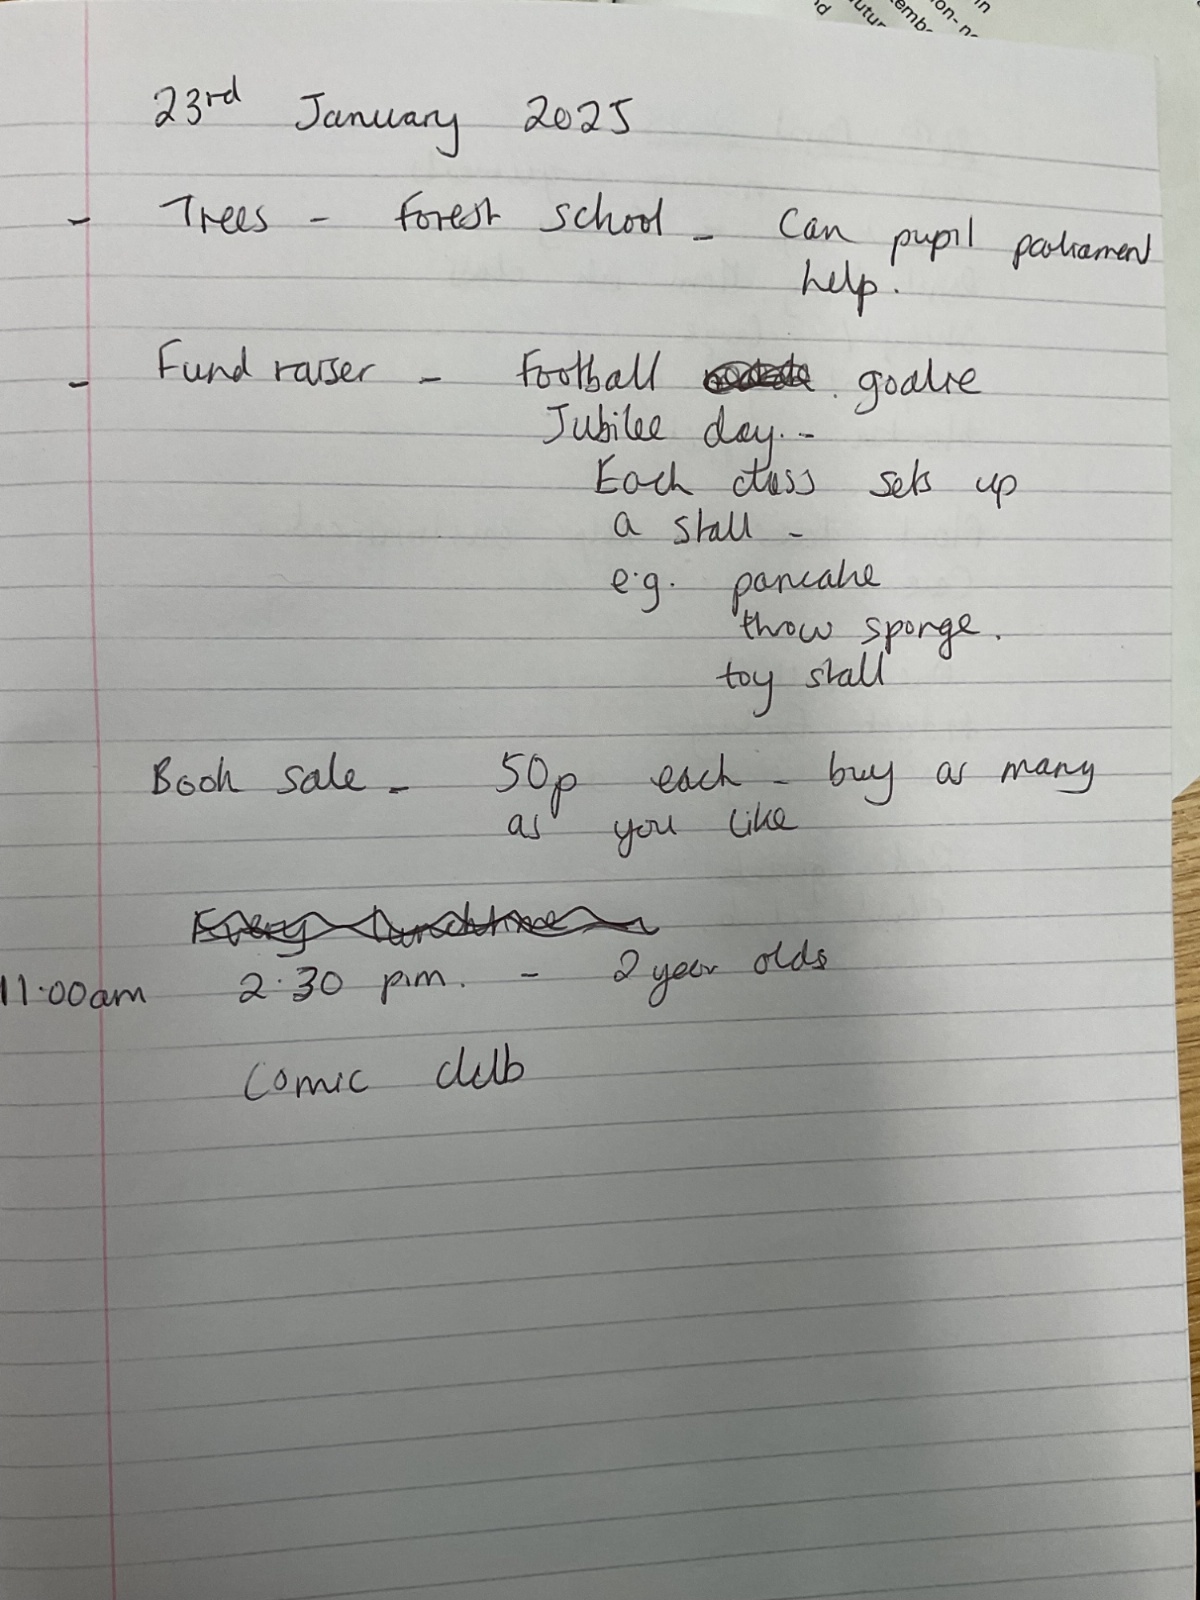 23rd January 2025
- Trees - Forest school - Can pupil parliament
help.
- Fund raiser - Football goalie
Jubilee day. -
Each class sets up
a stall -
e.g. pancake
throw sponge.
toy stall
Book sale - 50p each - buy as many
as you like
Every lunchtime
11:00am 2.30 p.m. - 2 year olds
Comic club